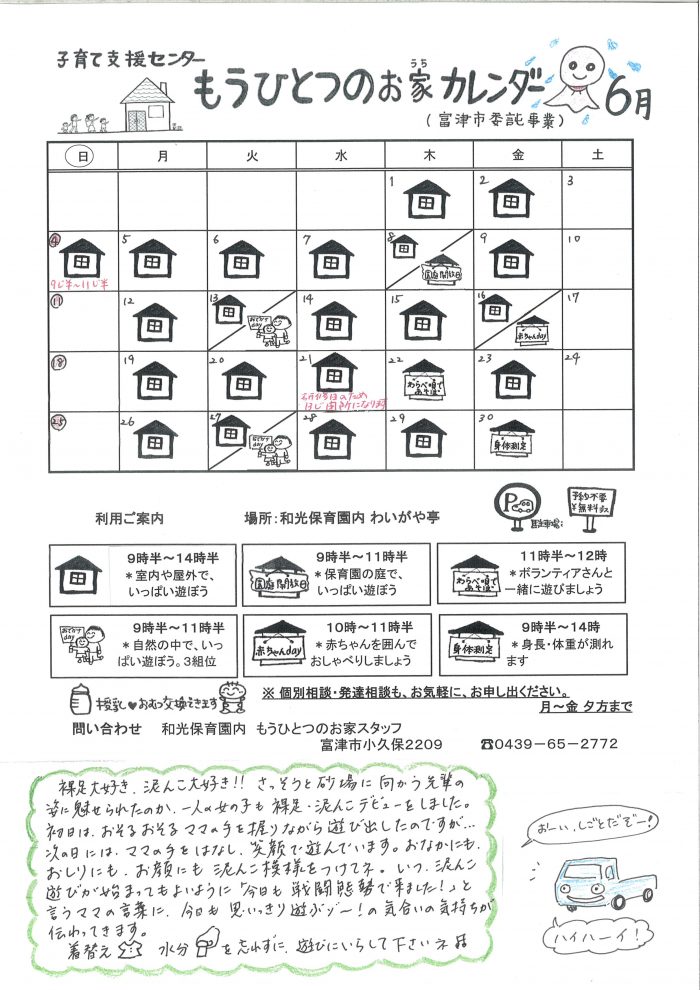 子育て支援センター
もうひとつのお家カレンダー 6月
うち
(富津市委託事業)
日 月 火 水 木 金 土
1 2 3
4 5 6 7 8 9 10
9じ半〜11じ半
園庭開放日
11 12 13 14 15 16 17
おでかけday
赤ちゃんday
18 19 20 21 22 23 24
わらべ唄であそぼ
のため
になります
25 26 27 28 29 30
おでかけday
身体測定
利用ご案内 場所:和光保育園内 わいがや亭
P
駐車場:
予約不要
¥無料
9時半〜14時半
*室内や屋外で、
いっぱい遊ぼう
園庭開放日
9時半〜11時半
*保育園の庭で、
いっぱい遊ぼう
わらべ唄であそぼ
11時半〜12時
*ボランティアさんと
一緒に遊びましょう
おでかけday
9時半〜11時半
*自然の中で、いっ
ぱい遊ぼう。3組位
赤ちゃんday
10時〜11時半
*赤ちゃんを囲んで
おしゃべりしましょう
身体測定
9時半〜14時
*身長・体重が測れ
ます
授乳♥おむつ交換できます
※ 個別相談・発達相談も、お気軽に、お申し出ください。
月〜金 夕方まで
問い合わせ 和光保育園内 もうひとつのお家スタッフ
富津市小久保2209 ☎0439-65-2772
裸足大好き、泥んこ大好き!! さっそうと砂場に向かう先輩の
姿に魅せられたのか、一人の女の子も裸足・泥んこデビューをしました。
初日は、おそるおそるママの手を握りながら遊び出したのですが…
次の日には、ママの手をはなし、笑顔で遊んでいます。おなかにも、
おしりにも、お顔にも泥んこ模様をつけてネ。いつ、泥んこ
遊びが始まってもよいように「今日も戦闘態勢で来ました!」と
言うママの言葉に、今日も思いっきり遊ぶゾー!の気合いの気持ちが
伝わってきます。
着替え 水分 を忘れずに、遊びにいらして下さいネ
おーい、しごとだぞー!
ハイハーイ!